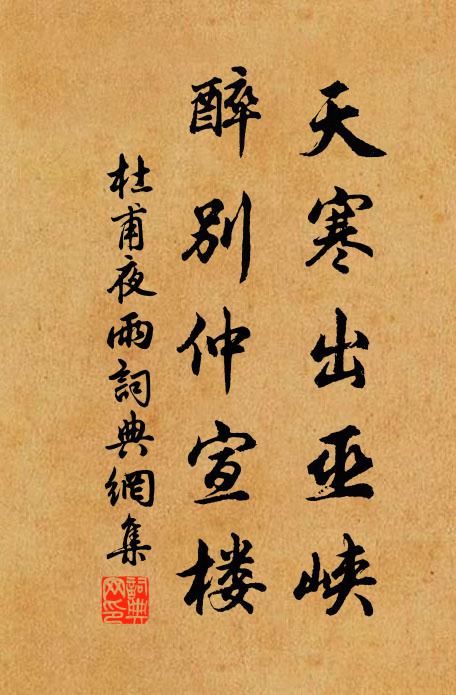 天寒出巫峡
醉别仲宣楼
杜甫夜雨詞典網集
詞典网印